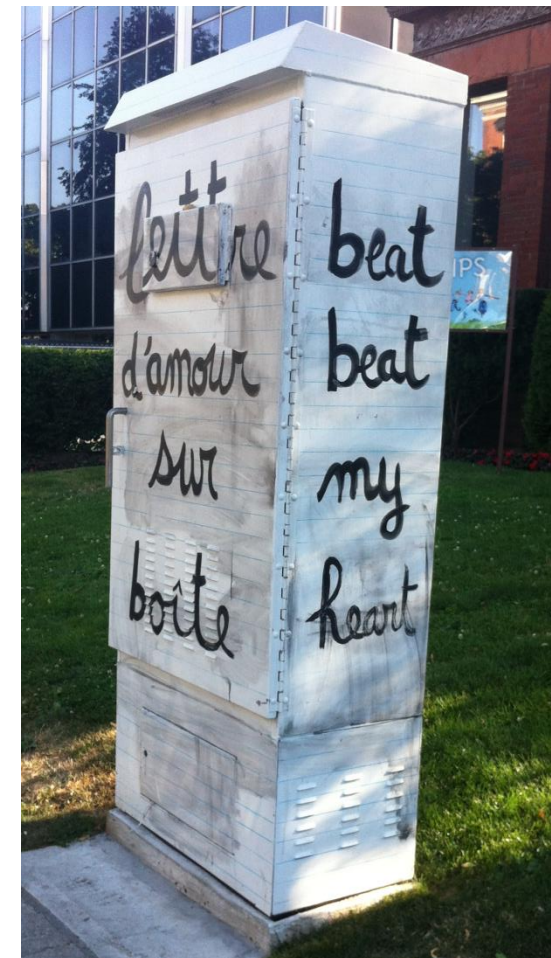 lettre
d'amour
sur
boîte
beat
beat
my
heart
IPS